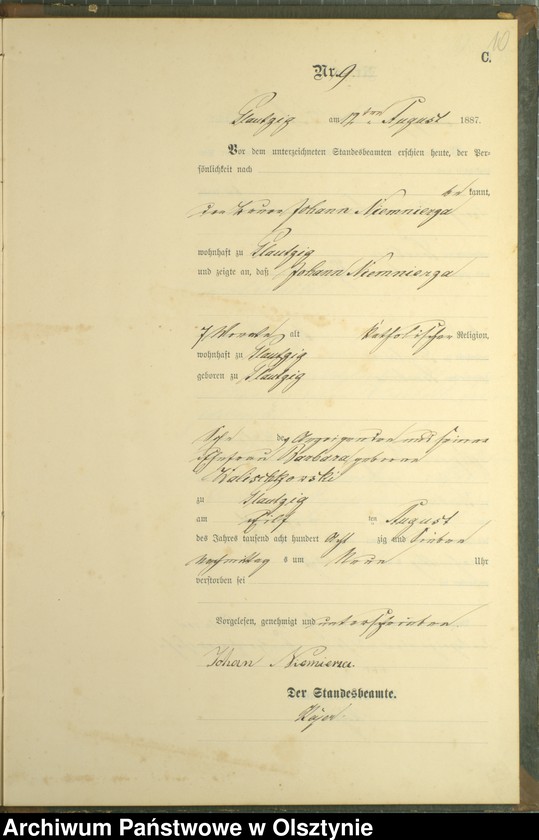 10
C.
Nr. 9
Plautzig am 12ten August 1887.
Vor dem unterzeichneten Standesbeamten erschien heute, der Per-
sönlichkeit nach
be kannt,
der Bauer Johann Niemnierza
wohnhaft zu Plautzig
und zeigte an, daß Johann Niemnierza
7 Monate alt katholischer Religion,
wohnhaft zu Plautzig
geboren zu Plautzig
Sohn des Anzeigenden und seiner
Ehefrau Barbara geborene
Kalischkowski
zu Plautzig
am Eilf ten August
des Jahres tausend acht hundert Acht zig und Sieben
Nachmittag s um Neun Uhr
verstorben sei
Vorgelesen, genehmigt und unterschrieben
Johan
Der Standesbeamte.
Archiwum Państwowe w Olsztynie